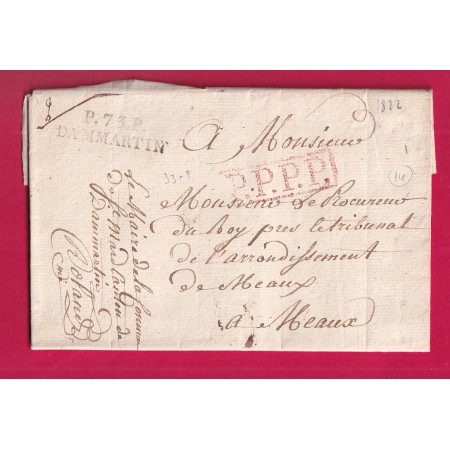 P. 73 P
DAMMARTIN
1822
A Monsieur
P.P.P.P.
33-8
14
Monsieur le Procureur
du Roy pres le tribunal
de l'arrondissement
de Meaux
a Meaux
Le Maire de la Commune
de Canton de
Dammartin